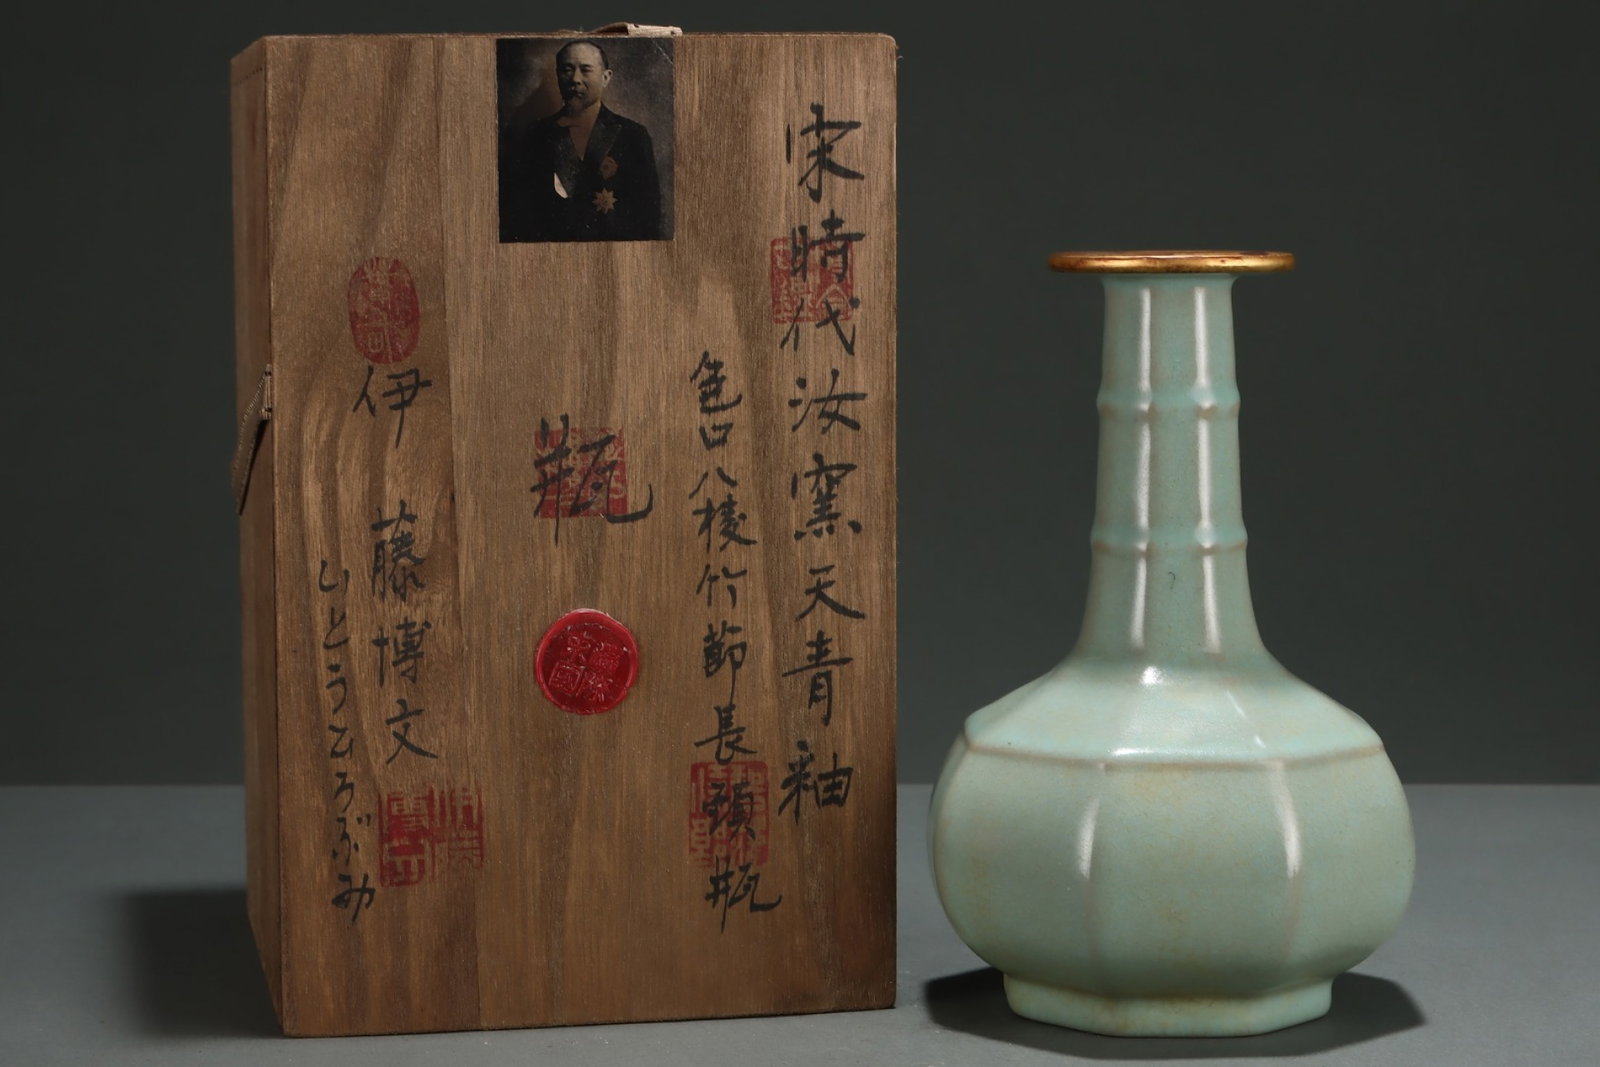 宋時代汝窯天青釉
包口八棱竹節長頸瓶
瓶
伊藤博文
いとうひろぶみ